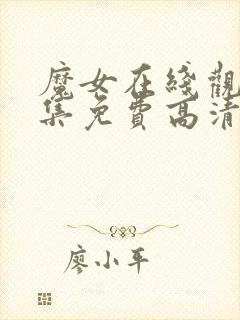 魔女在綫觀
集免費高清
廖小平